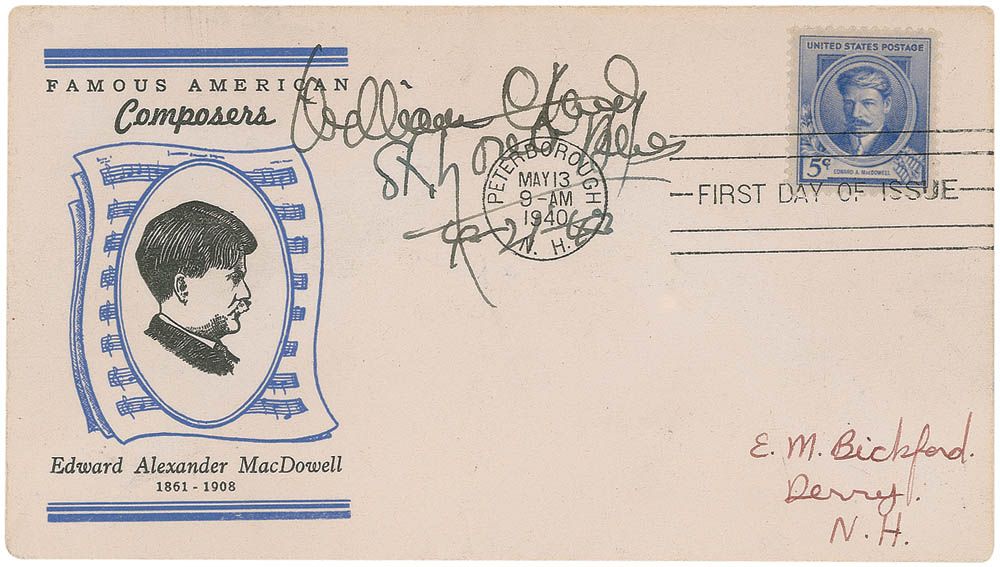 FAMOUS AMERICAN
Composers
Edward Alexander MacDowell
1861 - 1908
William
PETERBOROUGH
MAY 13
9-AM
1940
N. H.
UNITED STATES POSTAGE
5¢
EDWARD A. MACDOWELL
FIRST DAY OF ISSUE
E. M. Bickford.
Derry.
N. H.